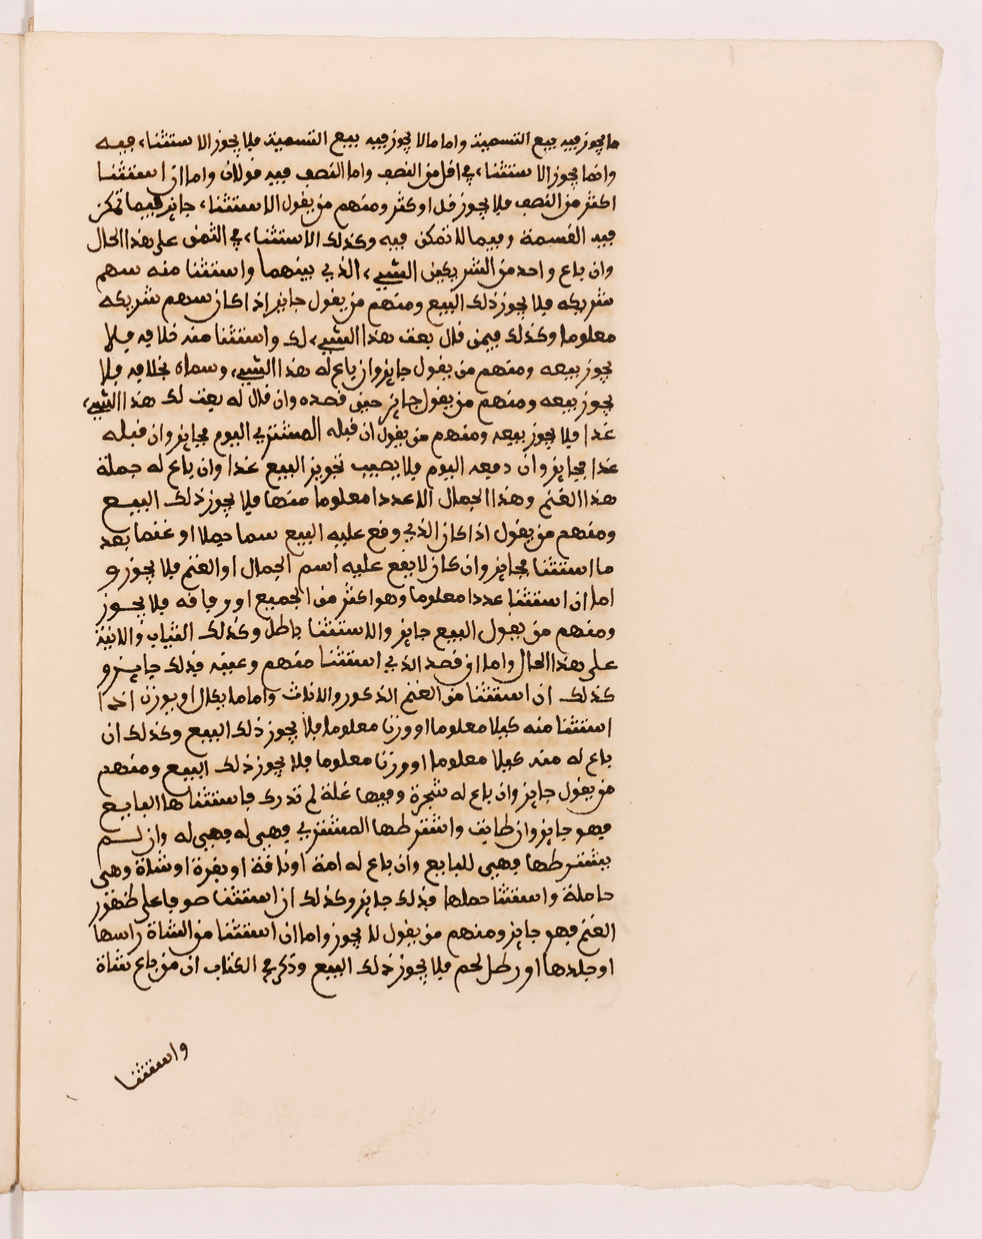 ما يجوز فيه بيع التسمية واما ما لا يجوز فيه بيع التسمية فلا يجوز الاستثناء فيه
وانما يجوز الاستثناء في اقل من النصف واما النصف ففيه قولان واما ان استثنا
اكثر من النصف فلا يجوز قل او كثر ومنهم من يقول الاستثناء جايز فيما تمكن
فيه القسمة وفيما لا تمكن فيه وكذلك الاستثناء في الثمن على هذا الحال
وان باع واحد من الشريكين الشيء الذي بينهما واستثنا منه سهم
شريكه فلا يجوز ذلك البيع ومنهم من يقول جايز اذا كان سهم شريكه
معلوما وكذلك فيمن قال بعت هذا الشيء لك واستثنا منه خلافه فلا
يجوز بيعه ومنهم من يقول جايز وان باع له هذا الشيء وسماه بخلافه فلا
يجوز بيعه ومنهم من يقول جايز حين قصده وان قال له بعت لك هذا الشيء
غدا فلا يجوز بيعه ومنهم من يقول ان قبله المشتري اليوم فجايز وان قبله
غدا فجايز وان دفعه اليوم فلا يصيب تجويز البيع غدا وان باع له جملة
هذا الغنم وهذا الجمال الا عددا معلوما منها فلا يجوز ذلك البيع
ومنهم من يقول اذا كان الذي وقع عليه البيع سما جملا او غنما بعد
ما استثنا فجايز وان كان لا يقع عليه اسم الجمال او الغنم فلا يجوز و
اما ان استثنا عددا معلوما وهو اكثر من الجميع او وفاقه فلا يجوز
ومنهم من يقول البيع جايز والاستثنا باطل وكذلك الثياب والانية
على هذا الحال واما ان قصد الذي استثنا منهم وعينه فذلك جايز و
كذلك ان استثنا من الغنم الذكور والاناث واما ما يكال او يوزن اذا
استثنا منه كيلا معلوما او وزنا معلوما فلا يجوز ذلك البيع وكذلك ان
باع له منه كيلا معلوما او وزنا معلوما فلا يجوز ذلك البيع ومنهم
من يقول جايز وان باع له شجرة وفيها غلة لم تدرك فاستثناها البايع
فهو جايز وان طابت واشترطها المشتري فهي له فهي له وان لم
يشترطها فهي للبايع وان باع له امة او ناقة او بقرة او شاة وهي
حاملة واستثنا حملها فذلك جايز وكذلك ان استثنا صوفا على ظهور
الغنم فهو جايز ومنهم من يقول لا يجوز واما ان استثنا من الشاة راسها
او جلدها او رطل لحم فلا يجوز ذلك البيع وذكر في الكتاب ان من باع شاة
واستثنا